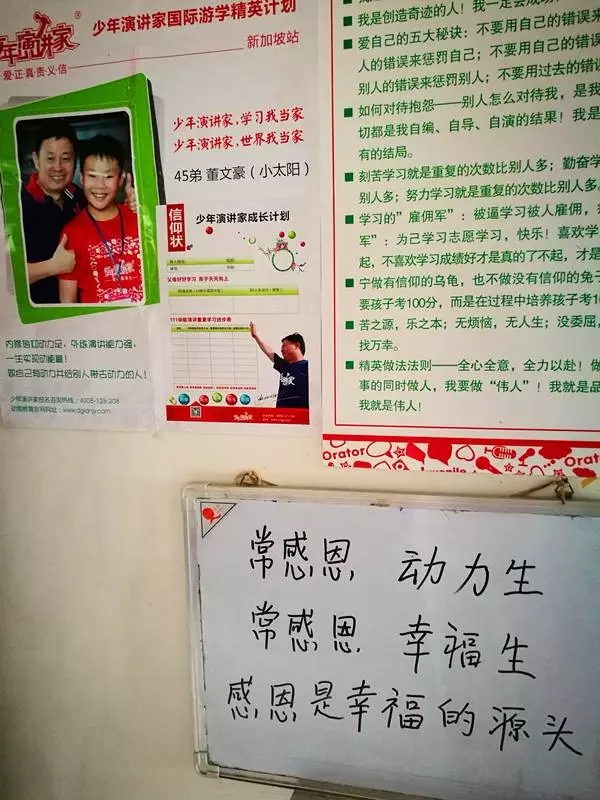 少年演讲家国际游学精英计划
年演讲家
爱正真责义信
新加坡站
少年演讲家,学习我当家
少年演讲家,世界我当家
45弟 董文豪(小太阳)
信仰状
少年演讲家成长计划
父母好好学习 孩子天天向上
内修信仰动力足,外练演讲能力强,
一生实现动能赢!
致自己有动力并给别人带去动力的人!
少年演讲家报名咨询热线:4008-128-208
我是创造奇迹的人!我一定会成功
爱自己的五大秘诀:不要用自己的错误
来惩罚自己;不要用自己的错
别人的错误来惩罚别人;不要用过去的错误
如何对待抱怨——别人怎么对待我,是我
切都是我自编、自导、自演的结果!我是
有的结局。
刻苦学习就是重复的次数比别人多;勤奋学
别人多;努力学习就是重复的次数比别人多。
学习的"雇佣军":被逼学习被人雇佣,
军":为己学习志愿学习,快乐!喜欢学
起,不喜欢学习成绩好才是真的了不起,才是
宁做有信仰的乌龟,也不做没有信仰的兔子
要孩子考100分,而是在过程中培养孩子考1
苦之源,乐之本;无烦恼,无人生;没委屈,
找万幸。
精英做法法则——全心全意,全力以赴!做
事的同时做人,我要做"伟人"!我就是品
我就是伟人!
Orator
Orator
常感恩 动力生
常感恩 幸福生
感恩是幸福的源头